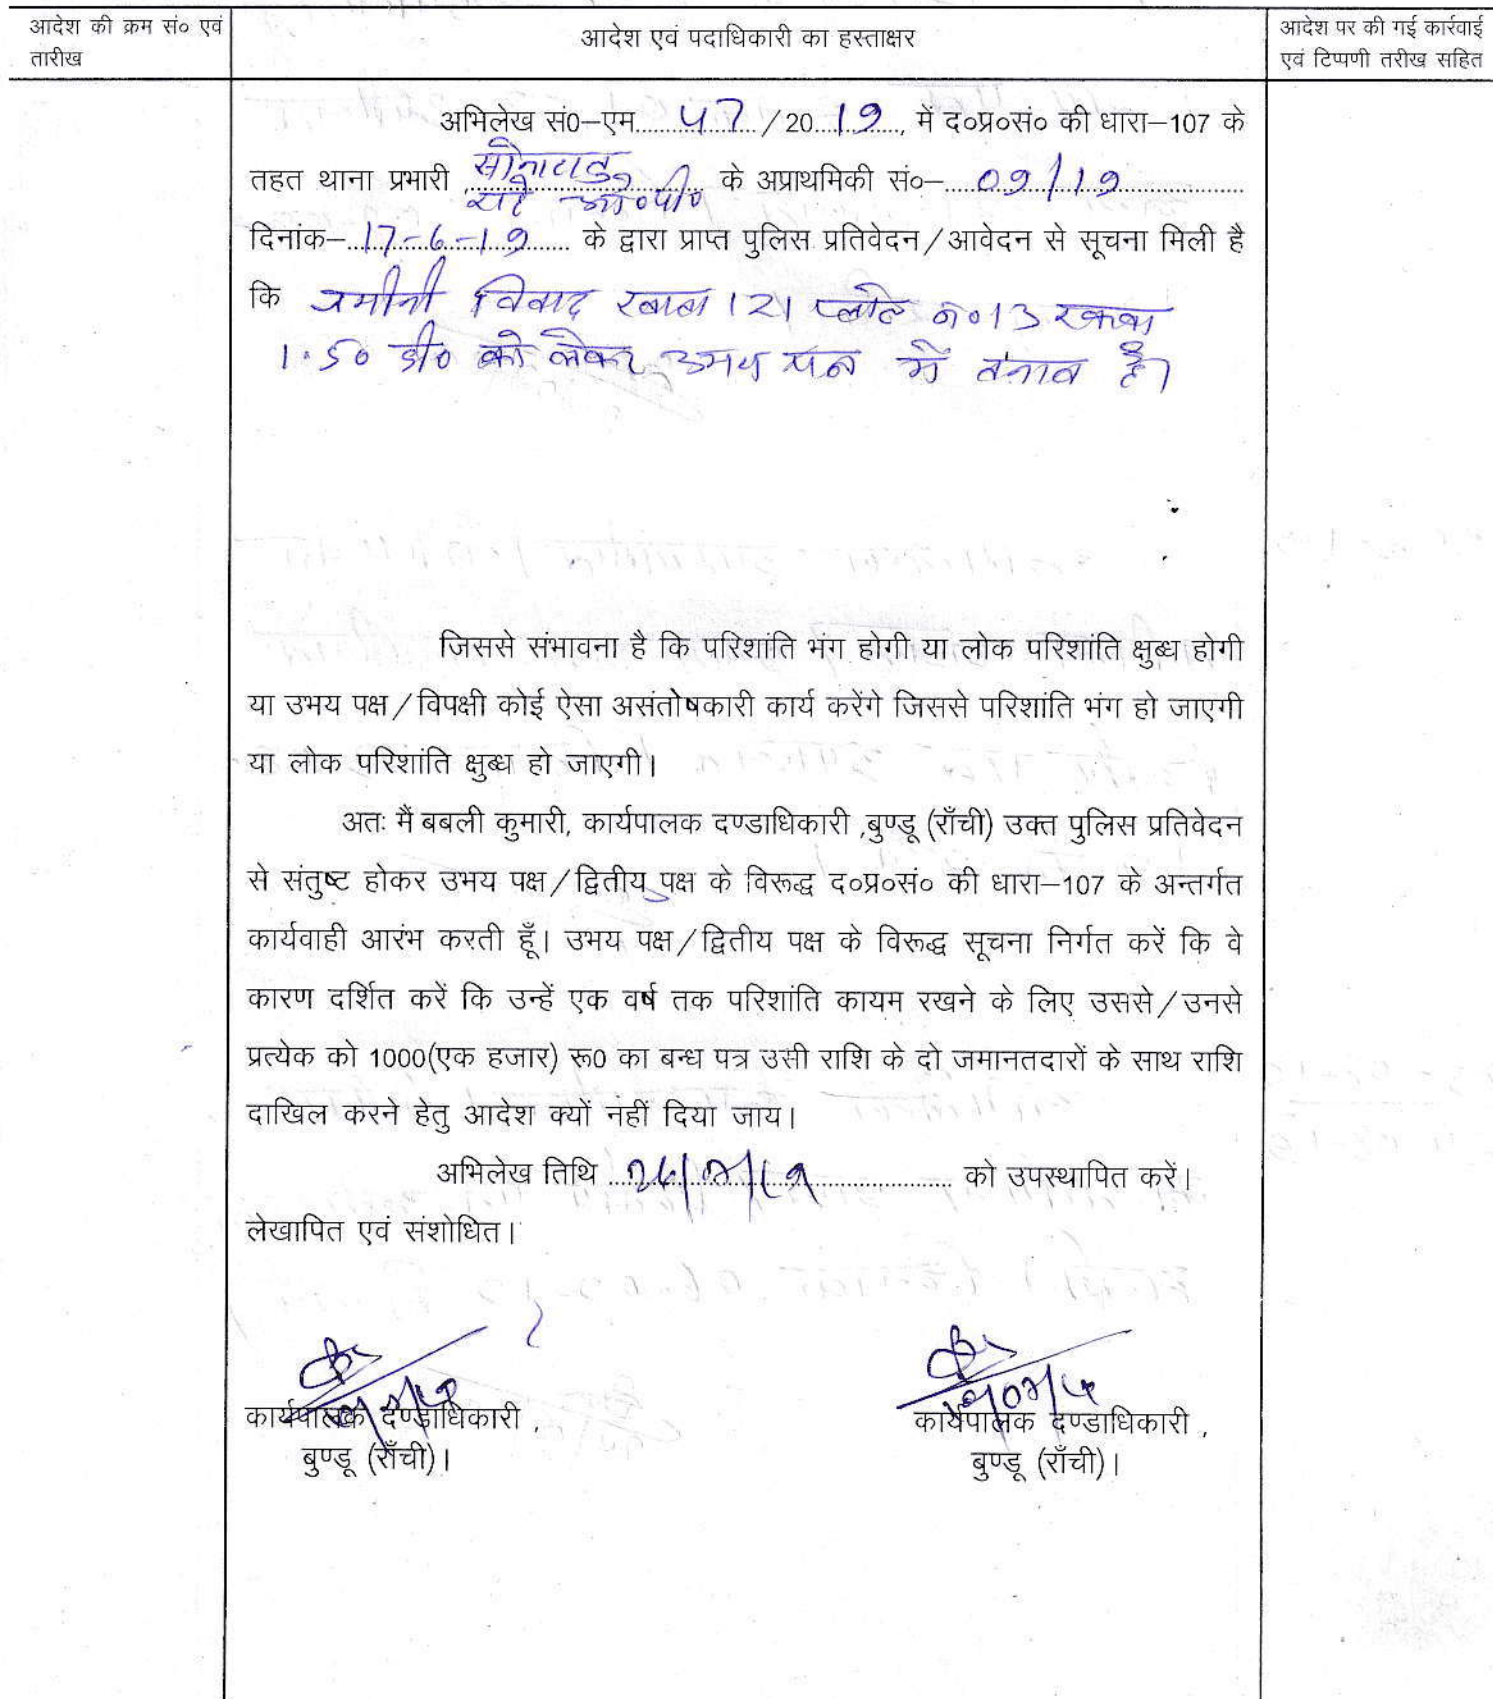 आदेश की क्रम सं० एवं
तारीख
आदेश एवं पदाधिकारी का हस्ताक्षर
आदेश पर की गई कार्रवाई
एवं टिप्पणी तरीख सहित
अभिलेख सं0–एम.....47.../20...19..., में द०प्र०सं० की धारा–107 के
तहत थाना प्रभारी सोनाहातु ओ०पी० के अप्राथमिकी सं०–....09/19....
दिनांक–..17-6-19.... के द्वारा प्राप्त पुलिस प्रतिवेदन/आवेदन से सूचना मिली है
कि जमीनी विवाद खाता 121 प्लौट न० 13 रकबा
1.50 डी० को लेकर उभय पक्ष में तनाव है।
जिससे संभावना है कि परिशांति भंग होगी या लोक परिशांति क्षुब्ध होगी
या उभय पक्ष/विपक्षी कोई ऐसा असंतोषकारी कार्य करेंगे जिससे परिशांति भंग हो जाएगी
या लोक परिशांति क्षुब्ध हो जाएगी।
अतः मैं बबली कुमारी, कार्यपालक दण्डाधिकारी ,बुण्डू (राँची) उक्त पुलिस प्रतिवेदन
से संतुष्ट होकर उभय पक्ष/द्वितीय पक्ष के विरूद्ध द०प्र०सं० की धारा–107 के अन्तर्गत
कार्यवाही आरंभ करती हूँ। उभय पक्ष/द्वितीय पक्ष के विरूद्ध सूचना निर्गत करें कि वे
कारण दर्शित करें कि उन्हें एक वर्ष तक परिशांति कायम रखने के लिए उससे/उनसे
प्रत्येक को 1000(एक हजार) रू0 का बन्ध पत्र उसी राशि के दो जमानतदारों के साथ राशि
दाखिल करने हेतु आदेश क्यों नहीं दिया जाय।
अभिलेख तिथि .......... को उपस्थापित करें।
लेखापित एवं संशोधित।
कार्यपालक दण्डाधिकारी ,
बुण्डू (राँची)।
कार्यपालक दण्डाधिकारी ,
बुण्डू (राँची)।